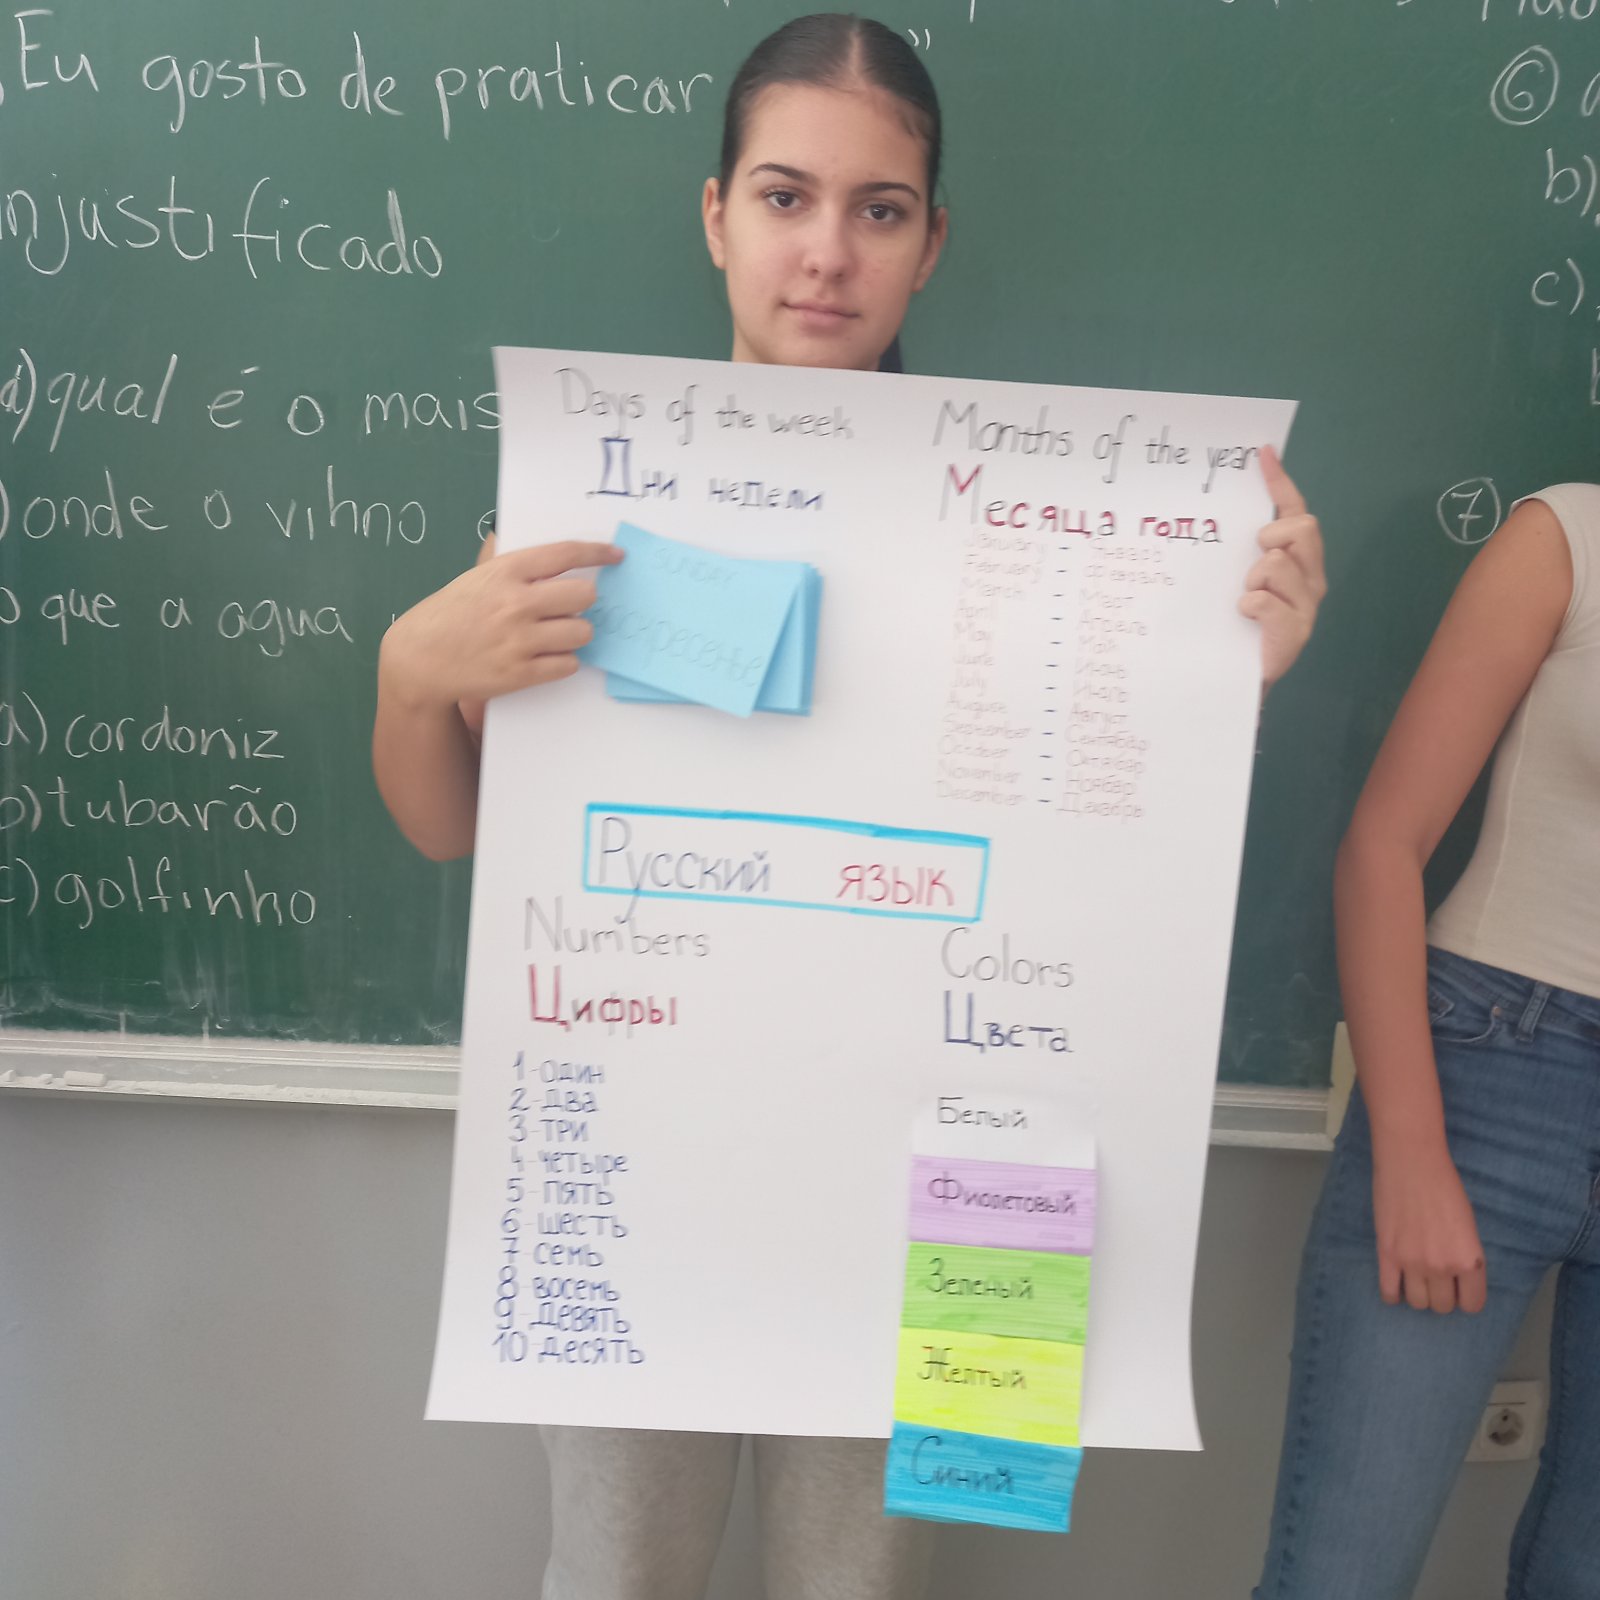 Eu gosto de praticar
njustificado
d) qual é o mais
onde o vihno
que a agua
a) cordoniz
b) tubarão
c) golfinho
6
b)
c)
7
Days of the week
Дни недели
SUNDAY
воскресенье
Months of the year
Месяца года
January - Январь
February - Февраль
March - Март
April - Апрель
May - Май
June - Июнь
July - Июль
August - Август
September - Сентябрь
October - Октябрь
November - Ноябрь
December - Декабрь
Русский язык
Numbers
Цифры
1-один
2-два
3-три
4-четыре
5-пять
6-шесть
7-семь
8-восемь
9-девять
10-десять
Colors
Цвета
Белый
Фиолетовый
Зеленый
Желтый
Синий